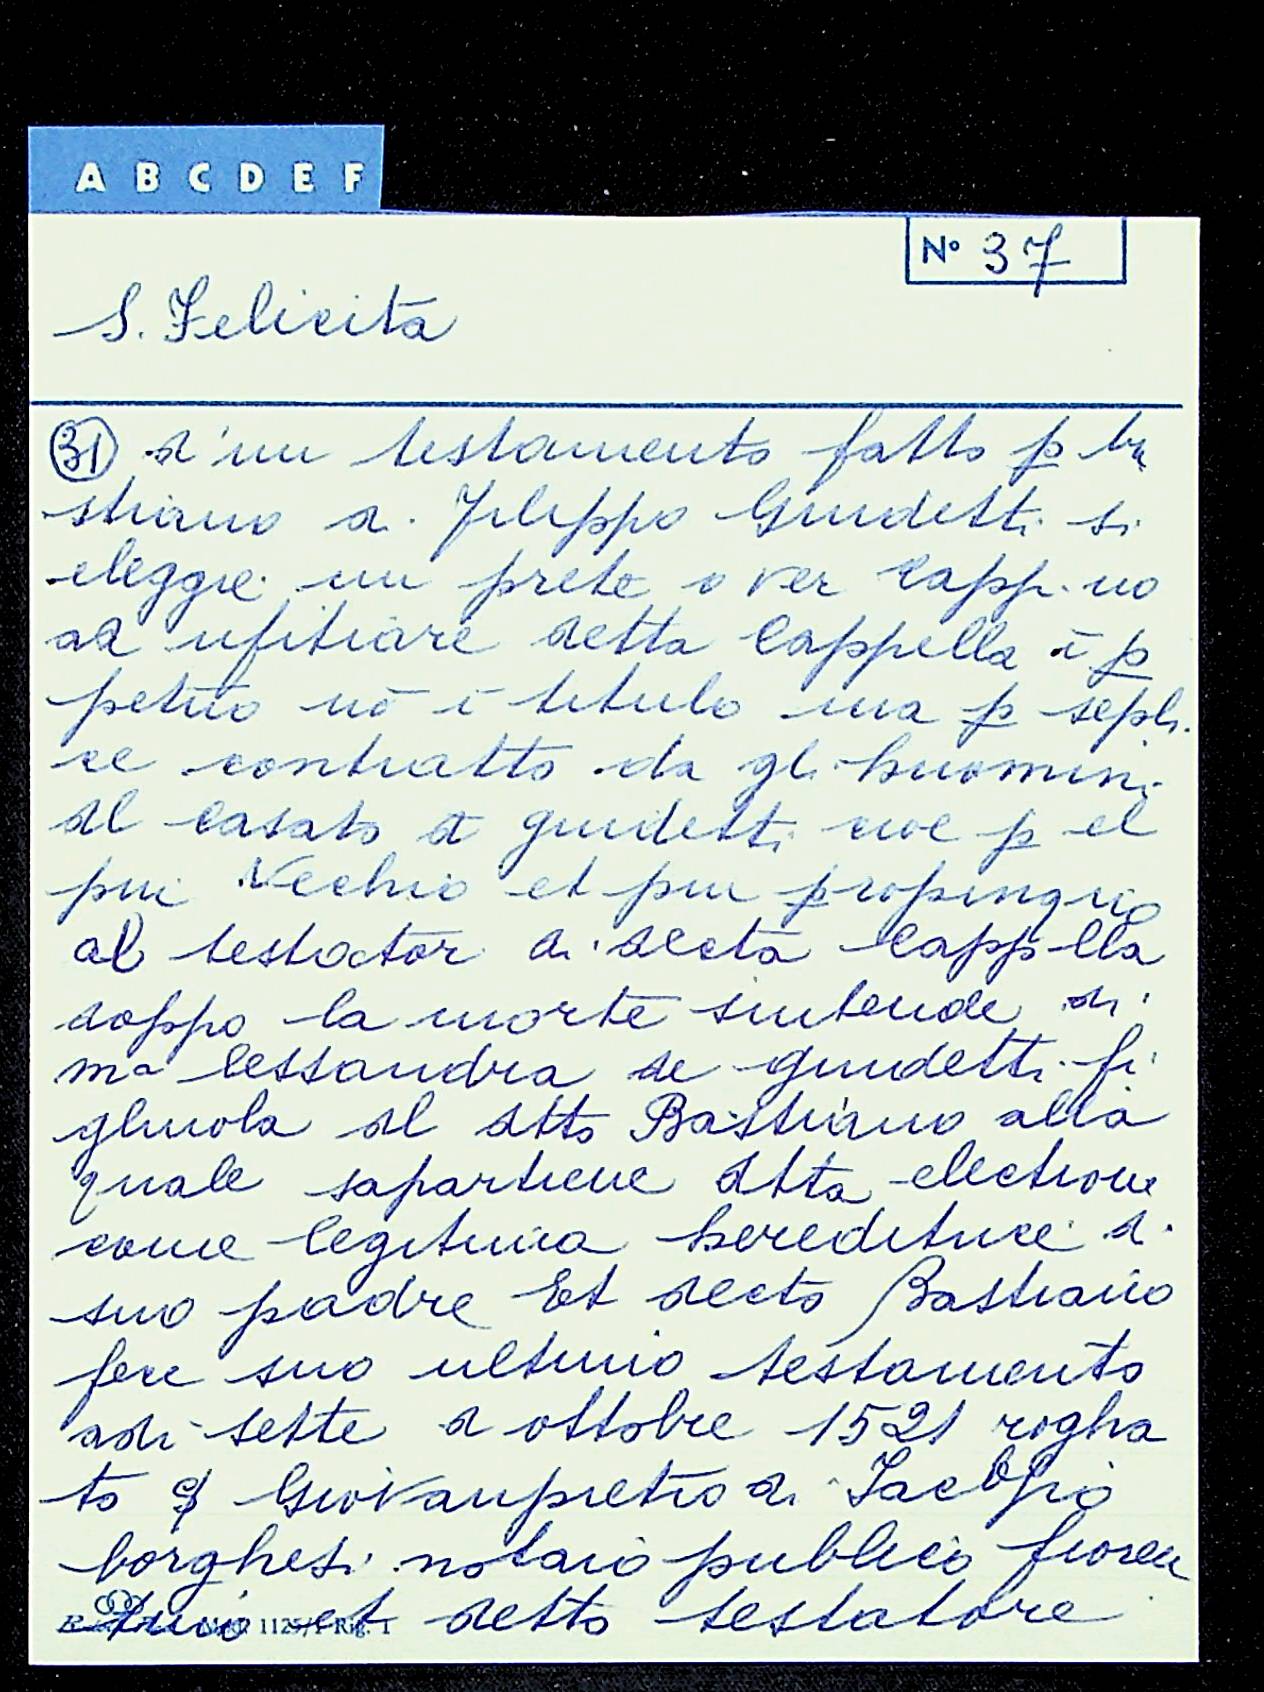 A B C D E F
Nº 37
S. Felicita
31 d'un testamento fatto p ba
stiano d. Filippo Guidetti si
elegge un prete o ver capp.no
ad ufitiare detta Cappella ī p
petuo nō ī titulo ma p sepli.
ce contratto da gli huomini
dl casato d guidetti cioe p el
piu Vecchio et piu propinquo
al testator di decta Capp-lla
doppo la morte sintende di
mª lessandra de guidetti fi
gliuola dl dtto Bastiano alla
quale sapartiene dtta electione
come legitima hereditrice d.
suo padre Et decto Bastiano
fece suo ultimo testamento
adi sette d ottobre 1521 rogha
to Giovanpietro di Iacopo
borghesi notaio publico fioren
tino et detto testatore
1125/1 Rig. 1